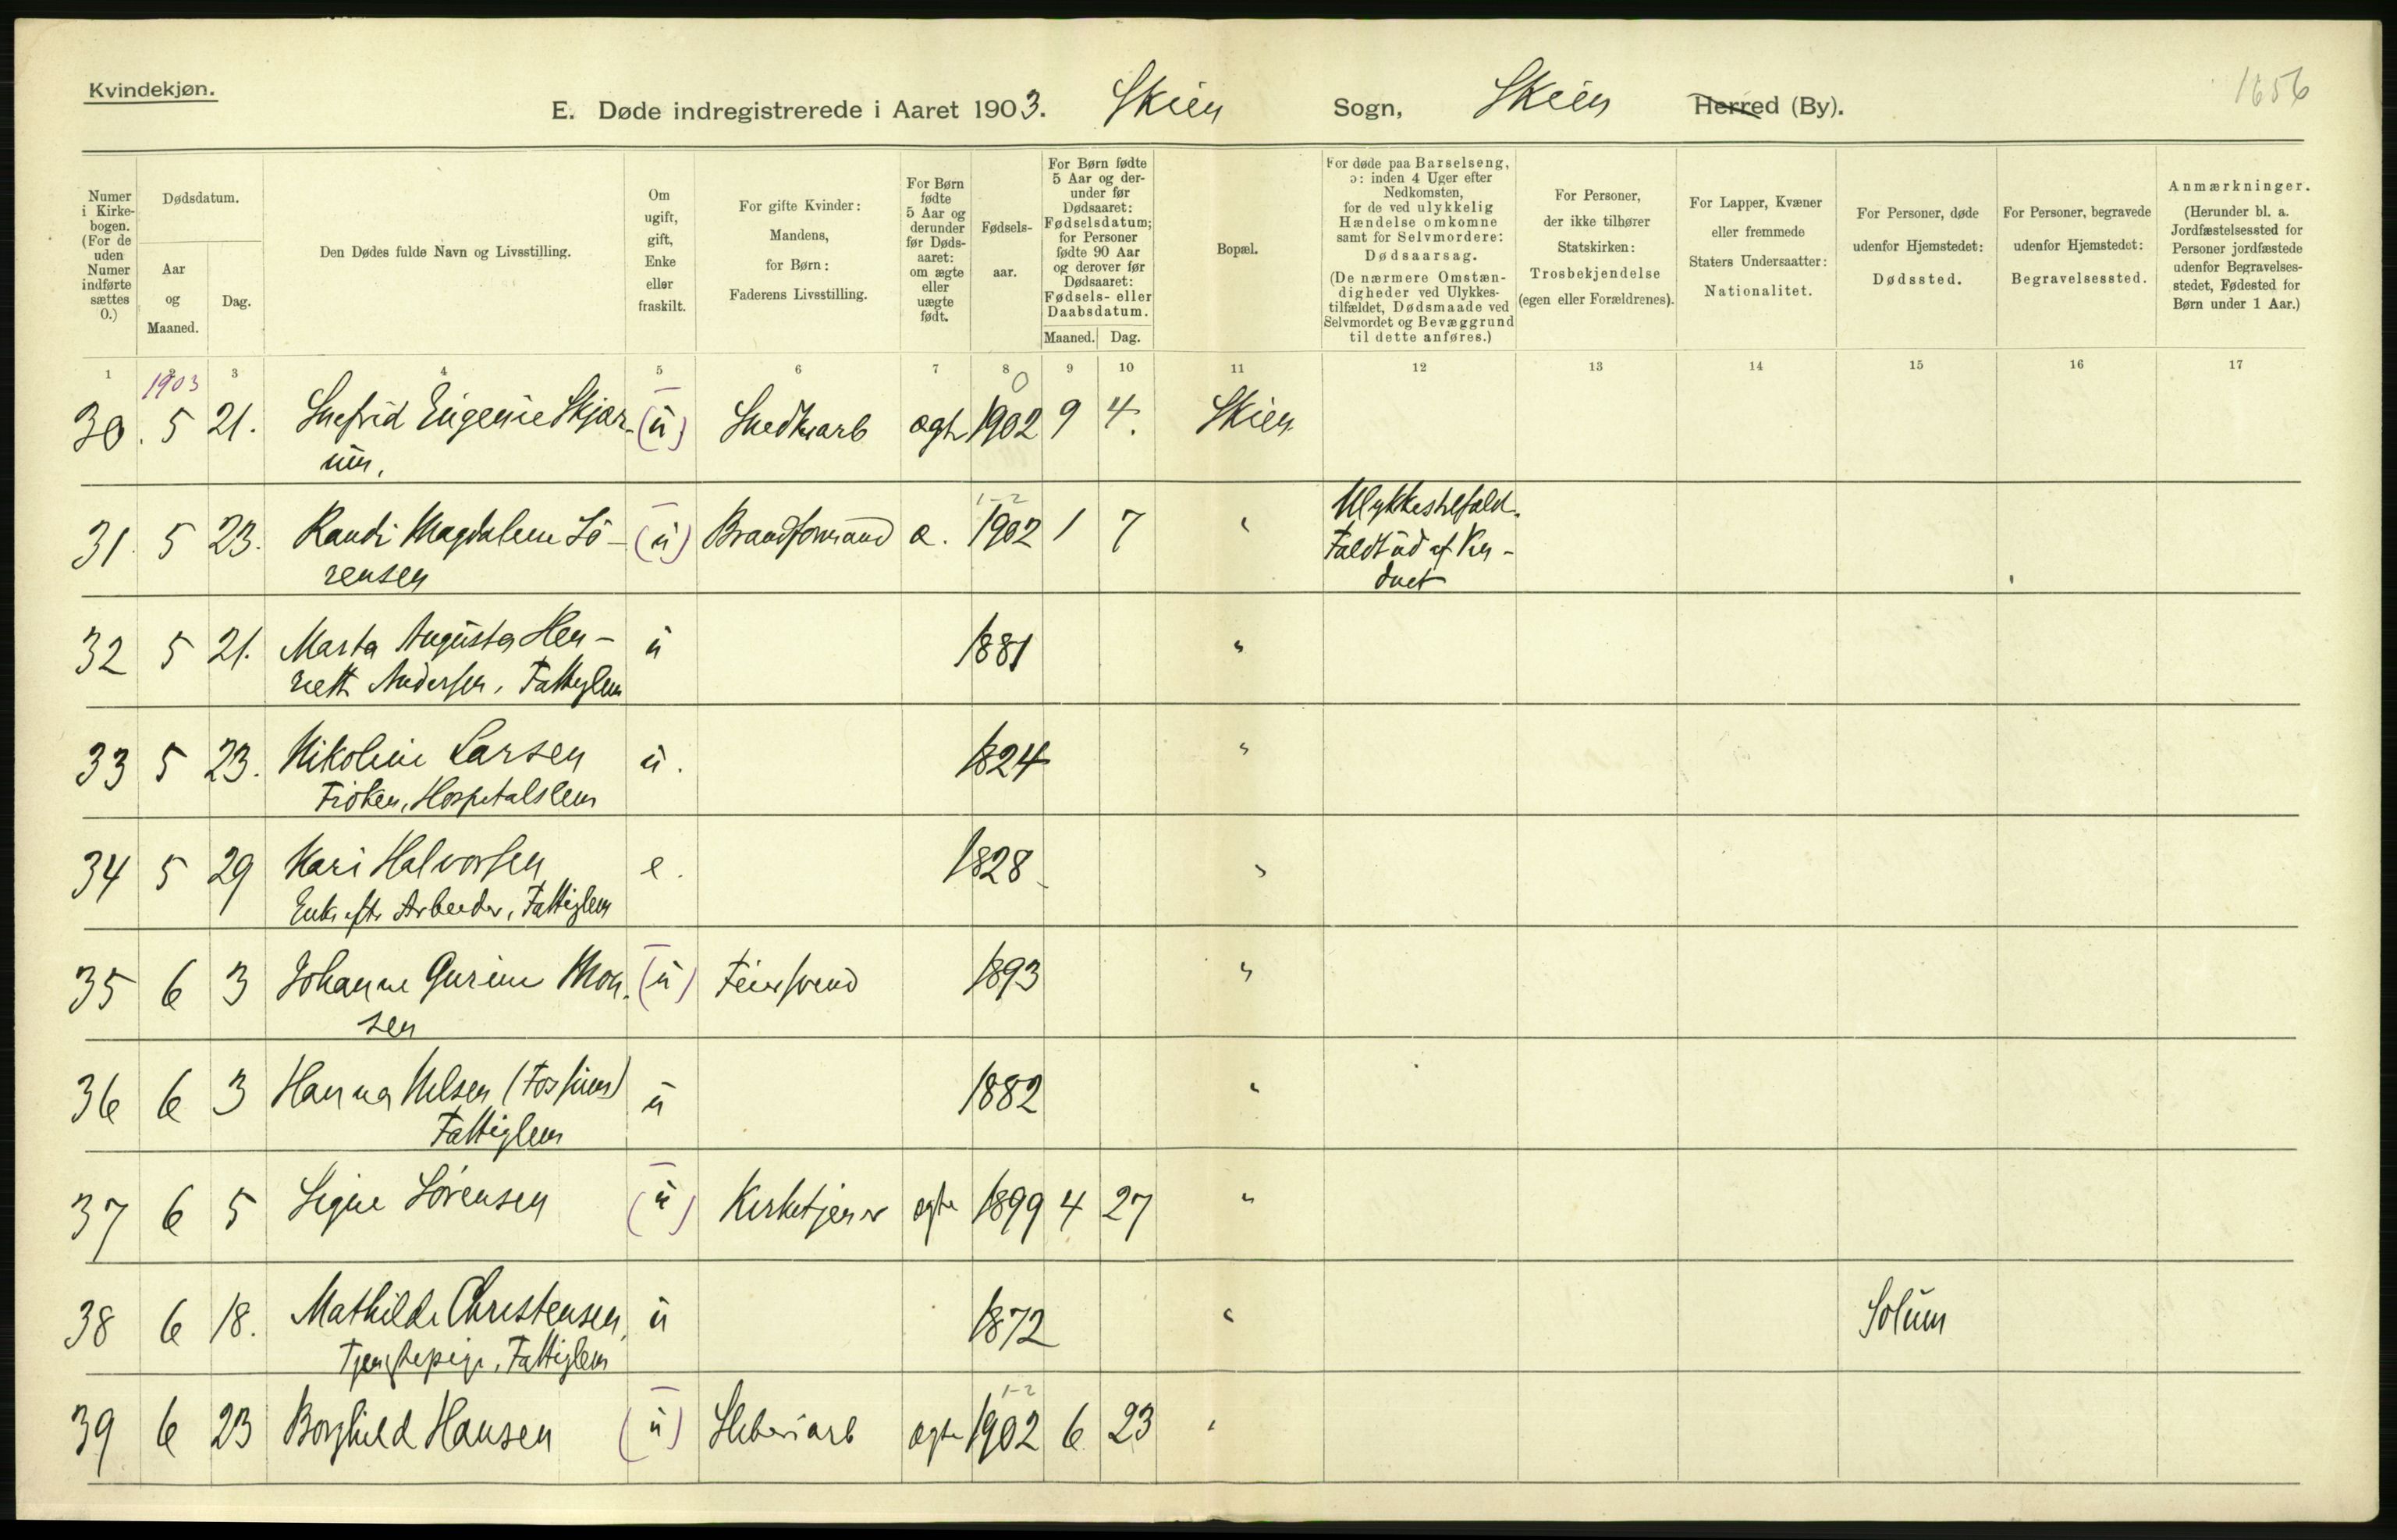 Kvindekjøn.
1656
E. Døde indregistrerede i Aaret 1903. Skien Sogn, Skien Herred (By).
Numer i Kirke-bogen. (For de uden Numer indførte sættes 0.)
Dødsdatum.
Aar og Maaned.
Dag.
Den Dødes fulde Navn og Livsstilling.
Om ugift, gift, Enke eller fraskilt.
For gifte Kvinder: Mandens, for Børn: Faderens Livsstilling.
For Børn fødte 5 Aar og derunder før Døds-aaret: om ægte eller uægte født.
Fødsels-aar.
For Børn fødte 5 Aar og der-under før Dødsaaret: Fødselsdatum; for Personer fødte 90 Aar og derover før Dødsaaret: Fødsels- eller Daabsdatum.
Maaned. Dag.
Bopæl.
For døde paa Barselseng, ɔ: inden 4 Uger efter Nedkomsten, for de ved ulykkelig Hændelse omkomne samt for Selvmordere: Dødsaarsag. (De nærmere Omstæn-digheder ved Ulykkes-tilfældet, Dødsmaade ved Selvmordet og Bevæggrund til dette anføres.)
For Personer, der ikke tilhører Statskirken: Trosbekjendelse (egen eller Forældrenes).
For Lapper, Kvæner eller fremmede Staters Undersaatter: Nationalitet.
For Personer, døde udenfor Hjemstedet: Dødssted.
For Personer, begravede udenfor Hjemstedet: Begravelsessted.
Anmærkninger. (Herunder bl. a. Jordfæstelsessted for Personer jordfæstede udenfor Begravelses-stedet, Fødested for Børn under 1 Aar.)
1 2 3 4 5 6 7 8 9 10 11 12 13 14 15 16 17
1903 0
30. 5 21. Snefrid Eugenie Skjær- (u) Snedkerarb ægte 1902 9 4. Skien
um.
1-2
31. 5 23. Randi Magdalene Sö- (u) Brandformand æ. 1902 1 7 " Ulykkestilfald.
rensen Faldt ud af Vin-
duet
32 5 21. Marta Augusta Hen- u 1881 "
riette Andersen, Fattiglem
33 5 23. Nikoline Larsen u. 1824 "
Fröken, Hospitalslem
34 5 29 Kari Halvorsen e. 1828 "
Enke eftr Arbeider, Fattiglem
35 6 3 Johanne Gurine Mon- (u) Feiersvend 1893 "
sen
36 6 3 Hanna Nilsen (Fossum) u 1882 "
Fattiglem
37 6 5 Signe Sörensen (u) Kirketjener ægte 1899 4 27 "
38 6 18. Mathilde Christensen, u 1872 " Solum
Tjenestepige, Fattiglem
1-2
39 6 23 Borghild Hansen (u) Sliberiarb ægte 1902 6 23 "